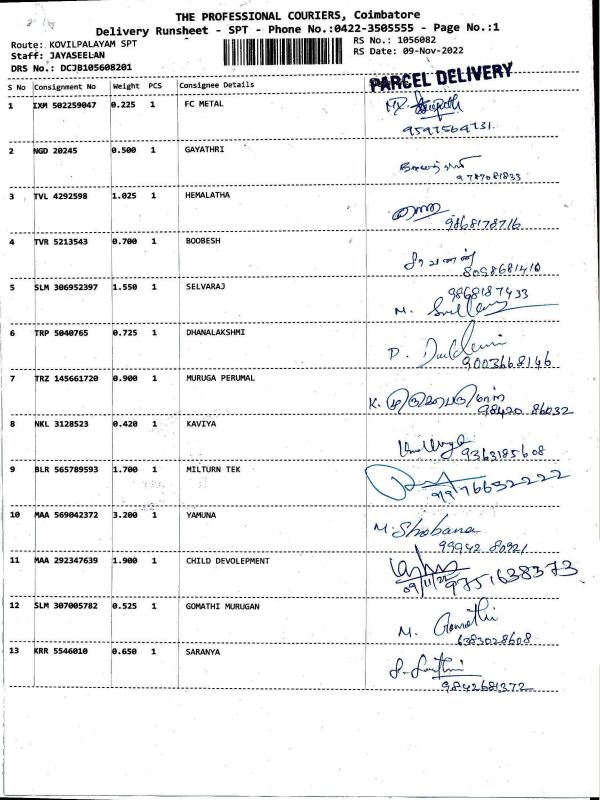 THE PROFESSIONAL COURIERS, Coimbatore
Delivery Runsheet - SPT - Phone No.:0422-3505555 - Page No.:1
Route: KOVILPALAYAM SPT
Staff: JAYASEELAN
DRS No.: DCJB105608201
RS No.: 1056082
RS Date: 09-Nov-2022
S No Consignment No Weight PCS Consignee Details
PARCEL DELIVERY
1 IXM 502259047 0.225 1 FC METAL
9597564731
2 NGD 20245 0.500 1 GAYATHRI
9787081833
3 TVL 4292598 1.025 1 HEMALATHA
9868178716
4 TVR 5213543 0.700 1 BOOBESH
சரவணன்
8098681410
5 SLM 306952397 1.550 1 SELVARAJ
9868187433
M.
6 TRP 5040765 0.725 1 DHANALAKSHMI
D.
9003668146
7 TRZ 145661720 0.900 1 MURUGA PERUMAL
K.
98420 86032
8 NKL 3128523 0.420 1 KAVIYA
9363185608
9 BLR 565789593 1.700 1 MILTURN TEK
10 MAA 569042372 3.200 1 YAMUNA
M. Shobana
99942 80921
11 MAA 292347639 1.900 1 CHILD DEVOLEPMENT
09/11/22 9751638373
12 SLM 307005782 0.525 1 GOMATHI MURUGAN
M. Gomathi
6383028608
13 KRR 5546010 0.650 1 SARANYA
9842681372